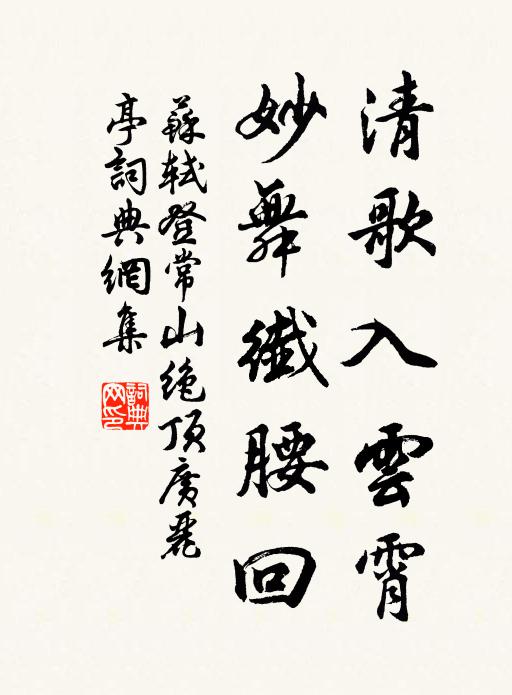 清歌入雲霄
妙舞纖腰回
蘇軾登常山絶頂廣麗
亭詞典網集
詞典
网印